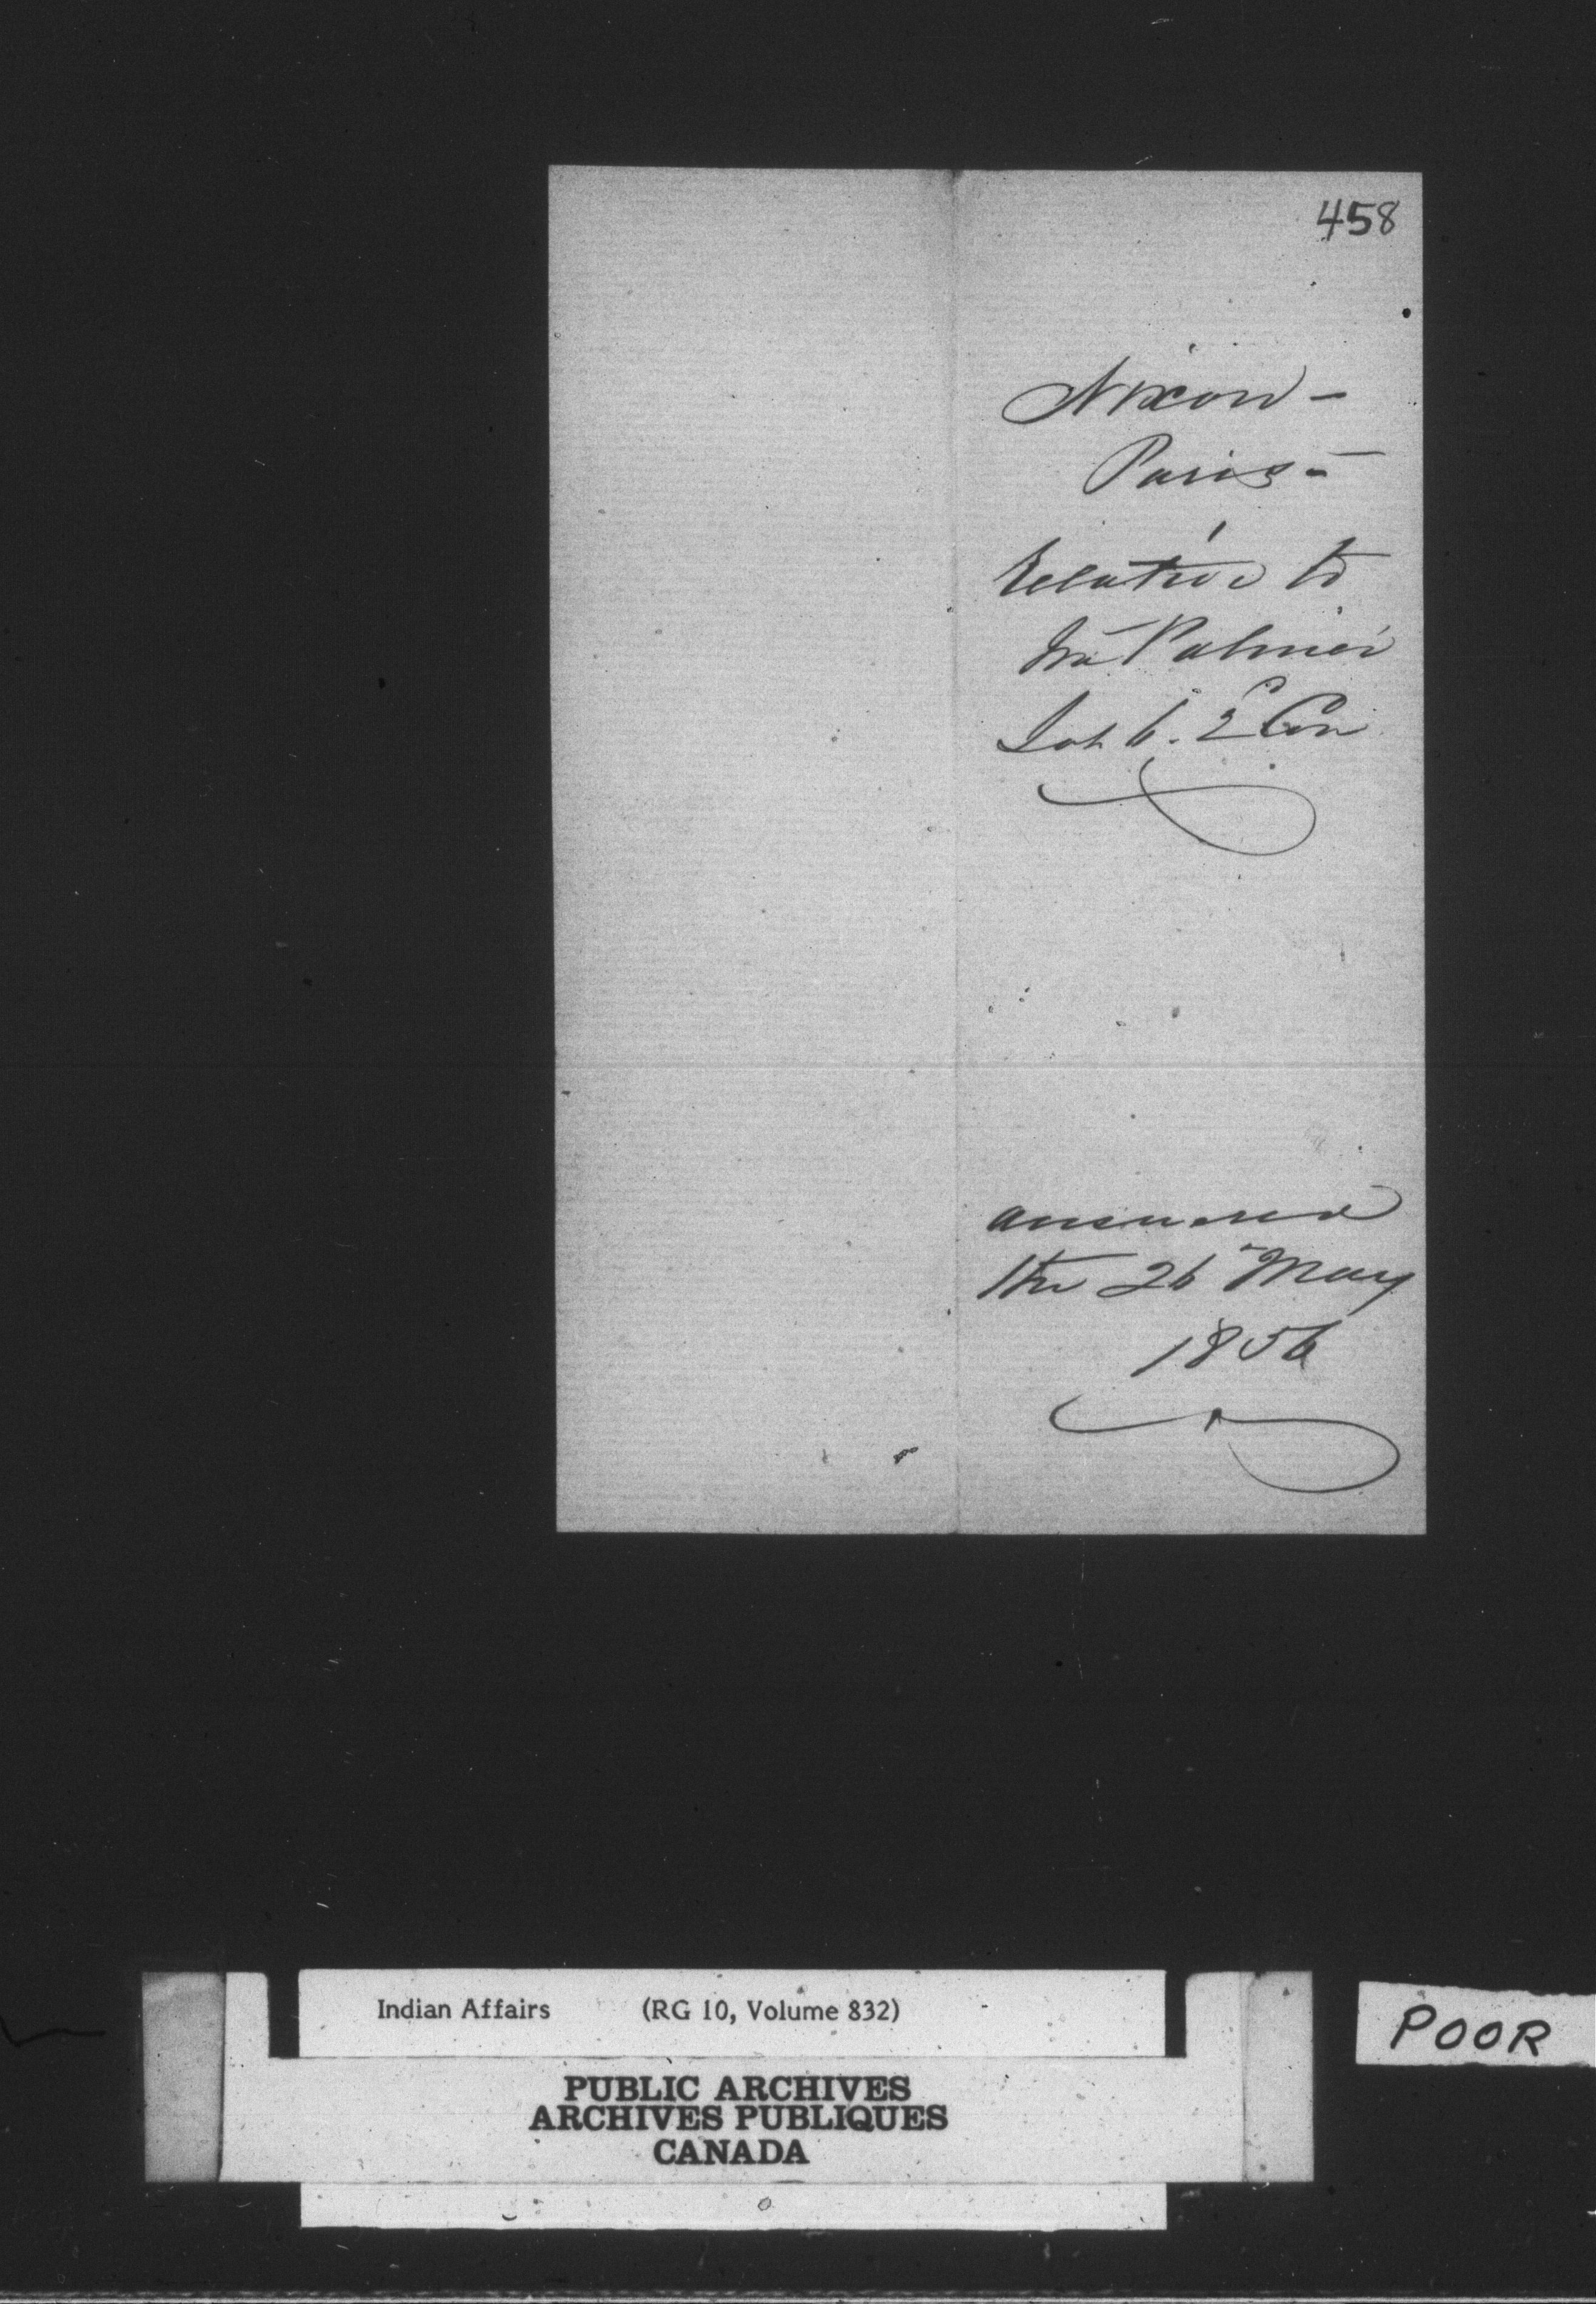 458
Nixon -
Paris -
Relative to
Palmer
Lot 6. 2 Con
answered
the 26 May
1856
Indian Affairs (RG 10, Volume 832)
PUBLIC ARCHIVES
ARCHIVES PUBLIQUES
CANADA
POOR